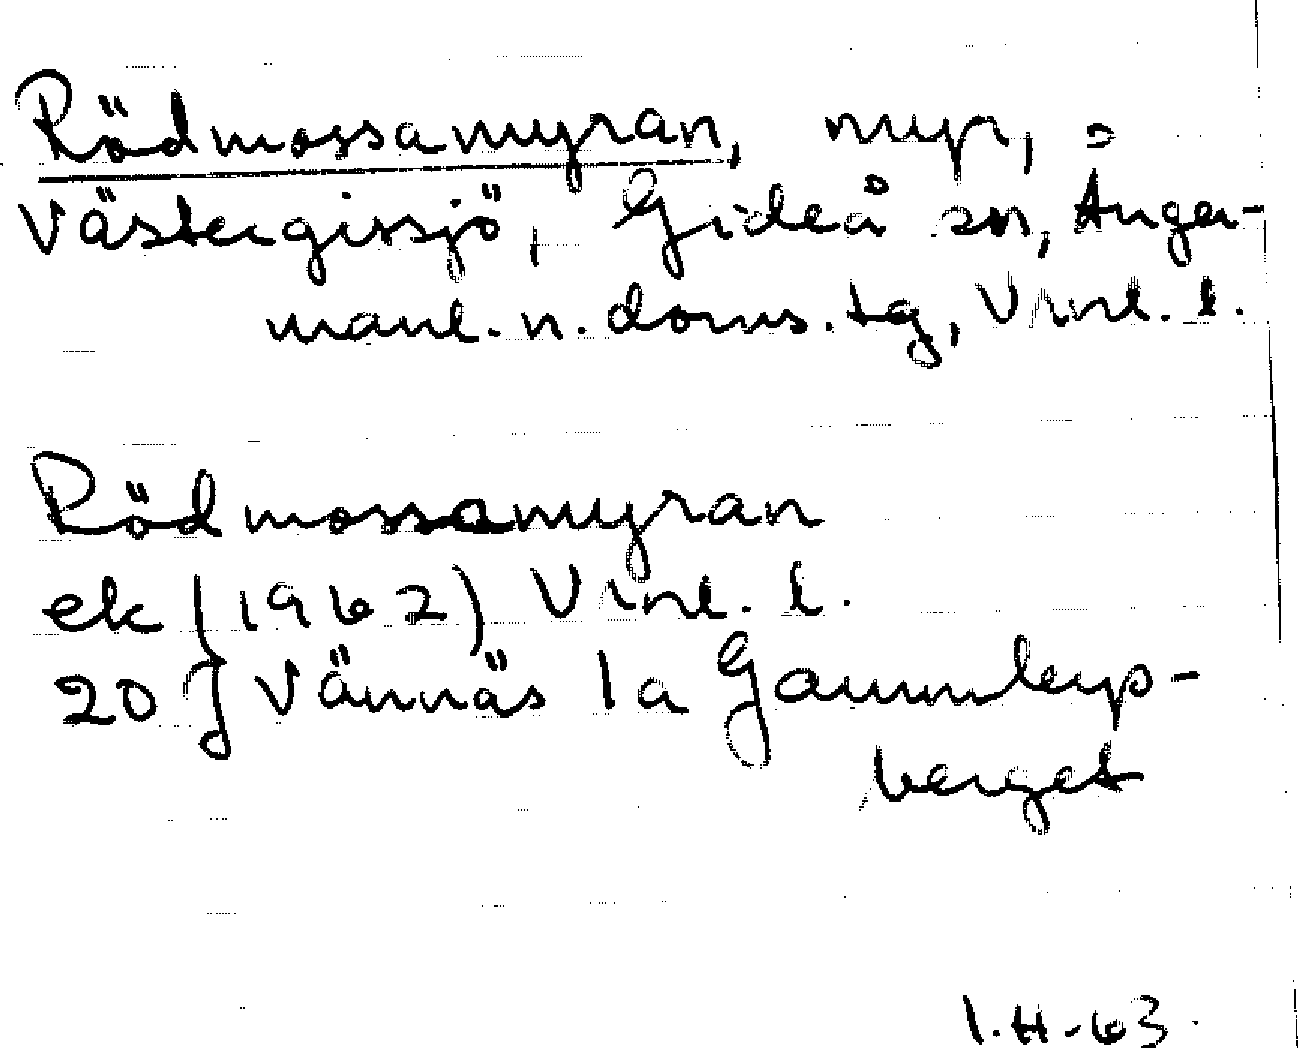 Rödmossamyran, myr,
Västergissjö, Gideå sn, Ånger-
manl. n. doms. tg, Vnrl. l.
Rödmossamyran
ek (1962) Vnrl. l.
20 J Vännäs 1a Gammleys-
berget
I.H-63.